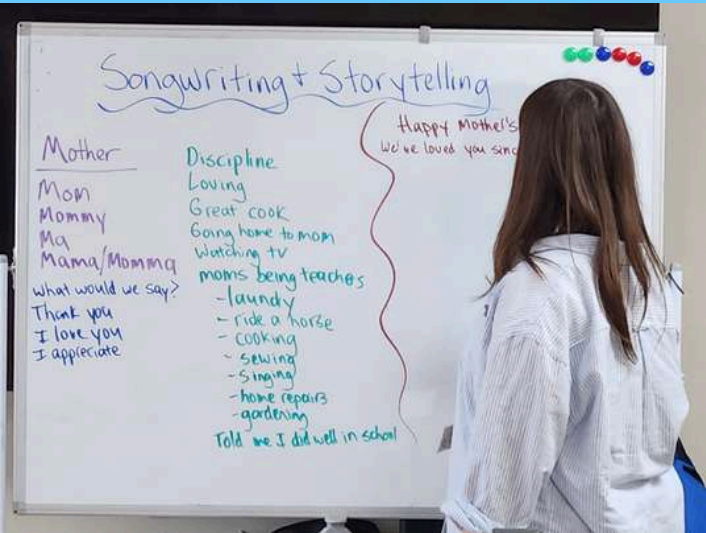 Songwriting + Storytelling
Mother
Mom
Mommy
Ma
Mama/Momma
What would we say?
Thank you
I love you
I appreciate
Discipline
Loving
Great cook
Going home to mom
Watching TV
moms being teachers
- laundy
- ride a horse
- cooking
- sewing
- Singing
- home repairs
- gardening
Told me I did well in school
Happy Mother's
We've loved you sinc